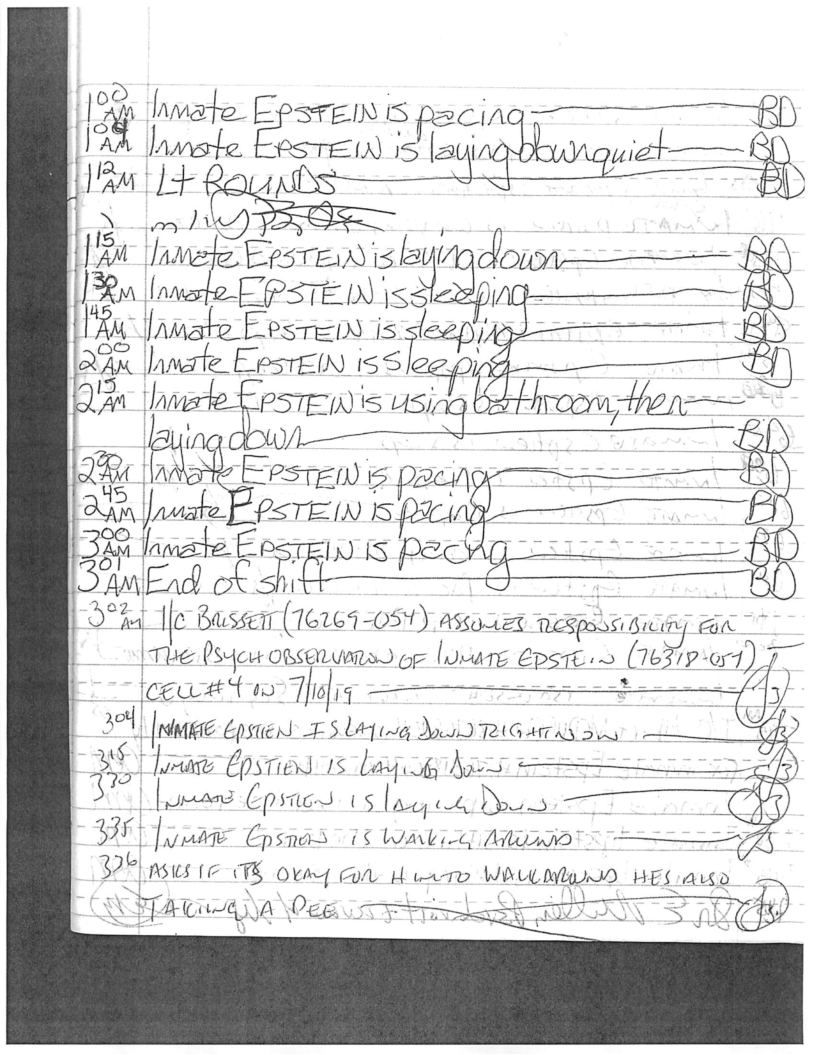 1 00 AM Inmate EPSTEIN is pacing BD
1 09 AM Inmate EPSTEIN is laying down quiet BD
1 12 AM Lt ROUNDS BD
1 15 AM Inmate EPSTEIN is laying down BD
1 30 AM Inmate EPSTEIN is sleeping BD
1 45 AM Inmate EPSTEIN is sleeping BD
2 00 AM Inmate EPSTEIN is sleeping BD
2 15 AM Inmate EPSTEIN is using bathroom, then
laying down BD
2 30 AM Inmate EPSTEIN is pacing BD
2 45 AM Inmate EPSTEIN is pacing BD
3 00 AM Inmate EPSTEIN is pacing BD
3 01 AM End of shift BD
3 02 AM I/C (76269-054) ASSUMES RESPONSIBILITY FOR
THE PSYCH OBSERVATION OF INMATE EPSTEIN (76318-054)
CELL #4 ON 7/10/19
304 INMATE EPSTIEN IS LAYING DOWN RIGHT NOW
315 INMATE EPSTIEN IS LAYING DOWN
330 INMATE EPSTIEN IS LAYING DOWN
335 INMATE EPSTIEN IS WALKING AROUND
336 ASKS IF ITS OKAY FOR HIM TO WALK AROUND HES ALSO
TAKING A PEE